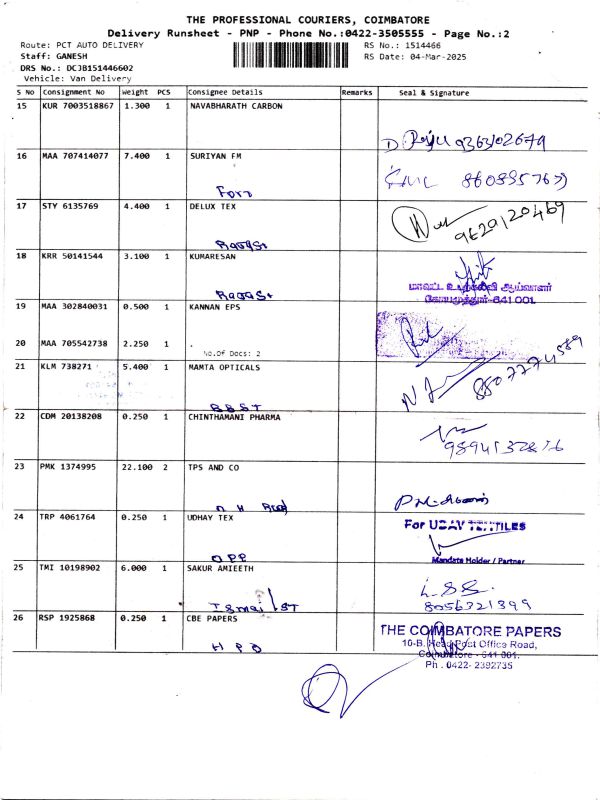 THE PROFESSIONAL COURIERS, COIMBATORE
Delivery Runsheet - PNP - Phone No.:0422-3505555 - Page No.:2
Route: PCT AUTO DELIVERY
RS No.: 1514466
Staff: GANESH
RS Date: 04-Mar-2025
DRS No.: DCJB151446602
Vehicle: Van Delivery
S No Consignment No Weight PCS Consignee Details Remarks Seal & Signature
15 KUR 7003518867 1.300 1 NAVABHARATH CARBON
16 MAA 707414077 7.400 1 SURIYAN FM
17 STY 6135769 4.400 1 DELUX TEX
9629120469
18 KRR 50141544 3.100 1 KUMARESAN
மாவட்ட ஆய்வாளர்
கோயமுத்தூர்-641 001.
19 MAA 302840031 0.500 1 KANNAN EPS
20 MAA 705542738 2.250 1 .
No.Of Docs: 2
21 KLM 738271 5.400 1 MAMTA OPTICALS
BBST
22 CDM 20138208 0.250 1 CHINTHAMANI PHARMA
23 PMK 1374995 22.100 2 TPS AND CO
24 TRP 4061764 0.250 1 UDHAY TEX
For UDAY TEXTILES
OPP
Mandate Holder / Partner
25 TMI 10198902 6.000 1 SAKUR AMIEETH
Ismail ST
8056321399
26 RSP 1925868 0.250 1 CBE PAPERS
HPO
THE COIMBATORE PAPERS
10-B, Head Post Office Road,
Coimbatore - 641 001.
Ph : 0422- 2392735